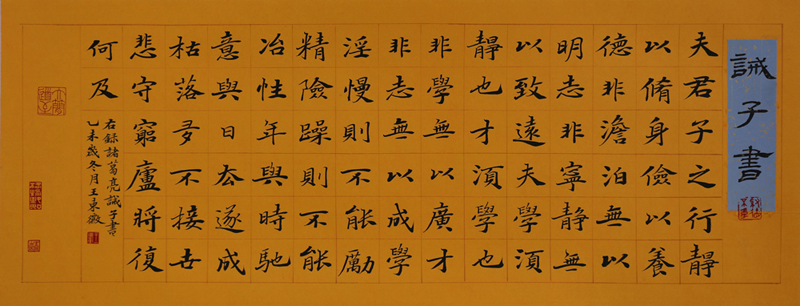 誡子書
夫君子之行靜
以脩身儉以養
德非澹泊無以
明志非寧靜無
以致遠夫學須
靜也才須學也
非學無以廣才
非志無以成學
淫慢則不能勵
精險躁則不能
冶性年與時馳
意與日去遂成
枯落多不接世
悲守窮廬將復
何及
右錄諸葛亮誡子書
乙未歲冬月王東